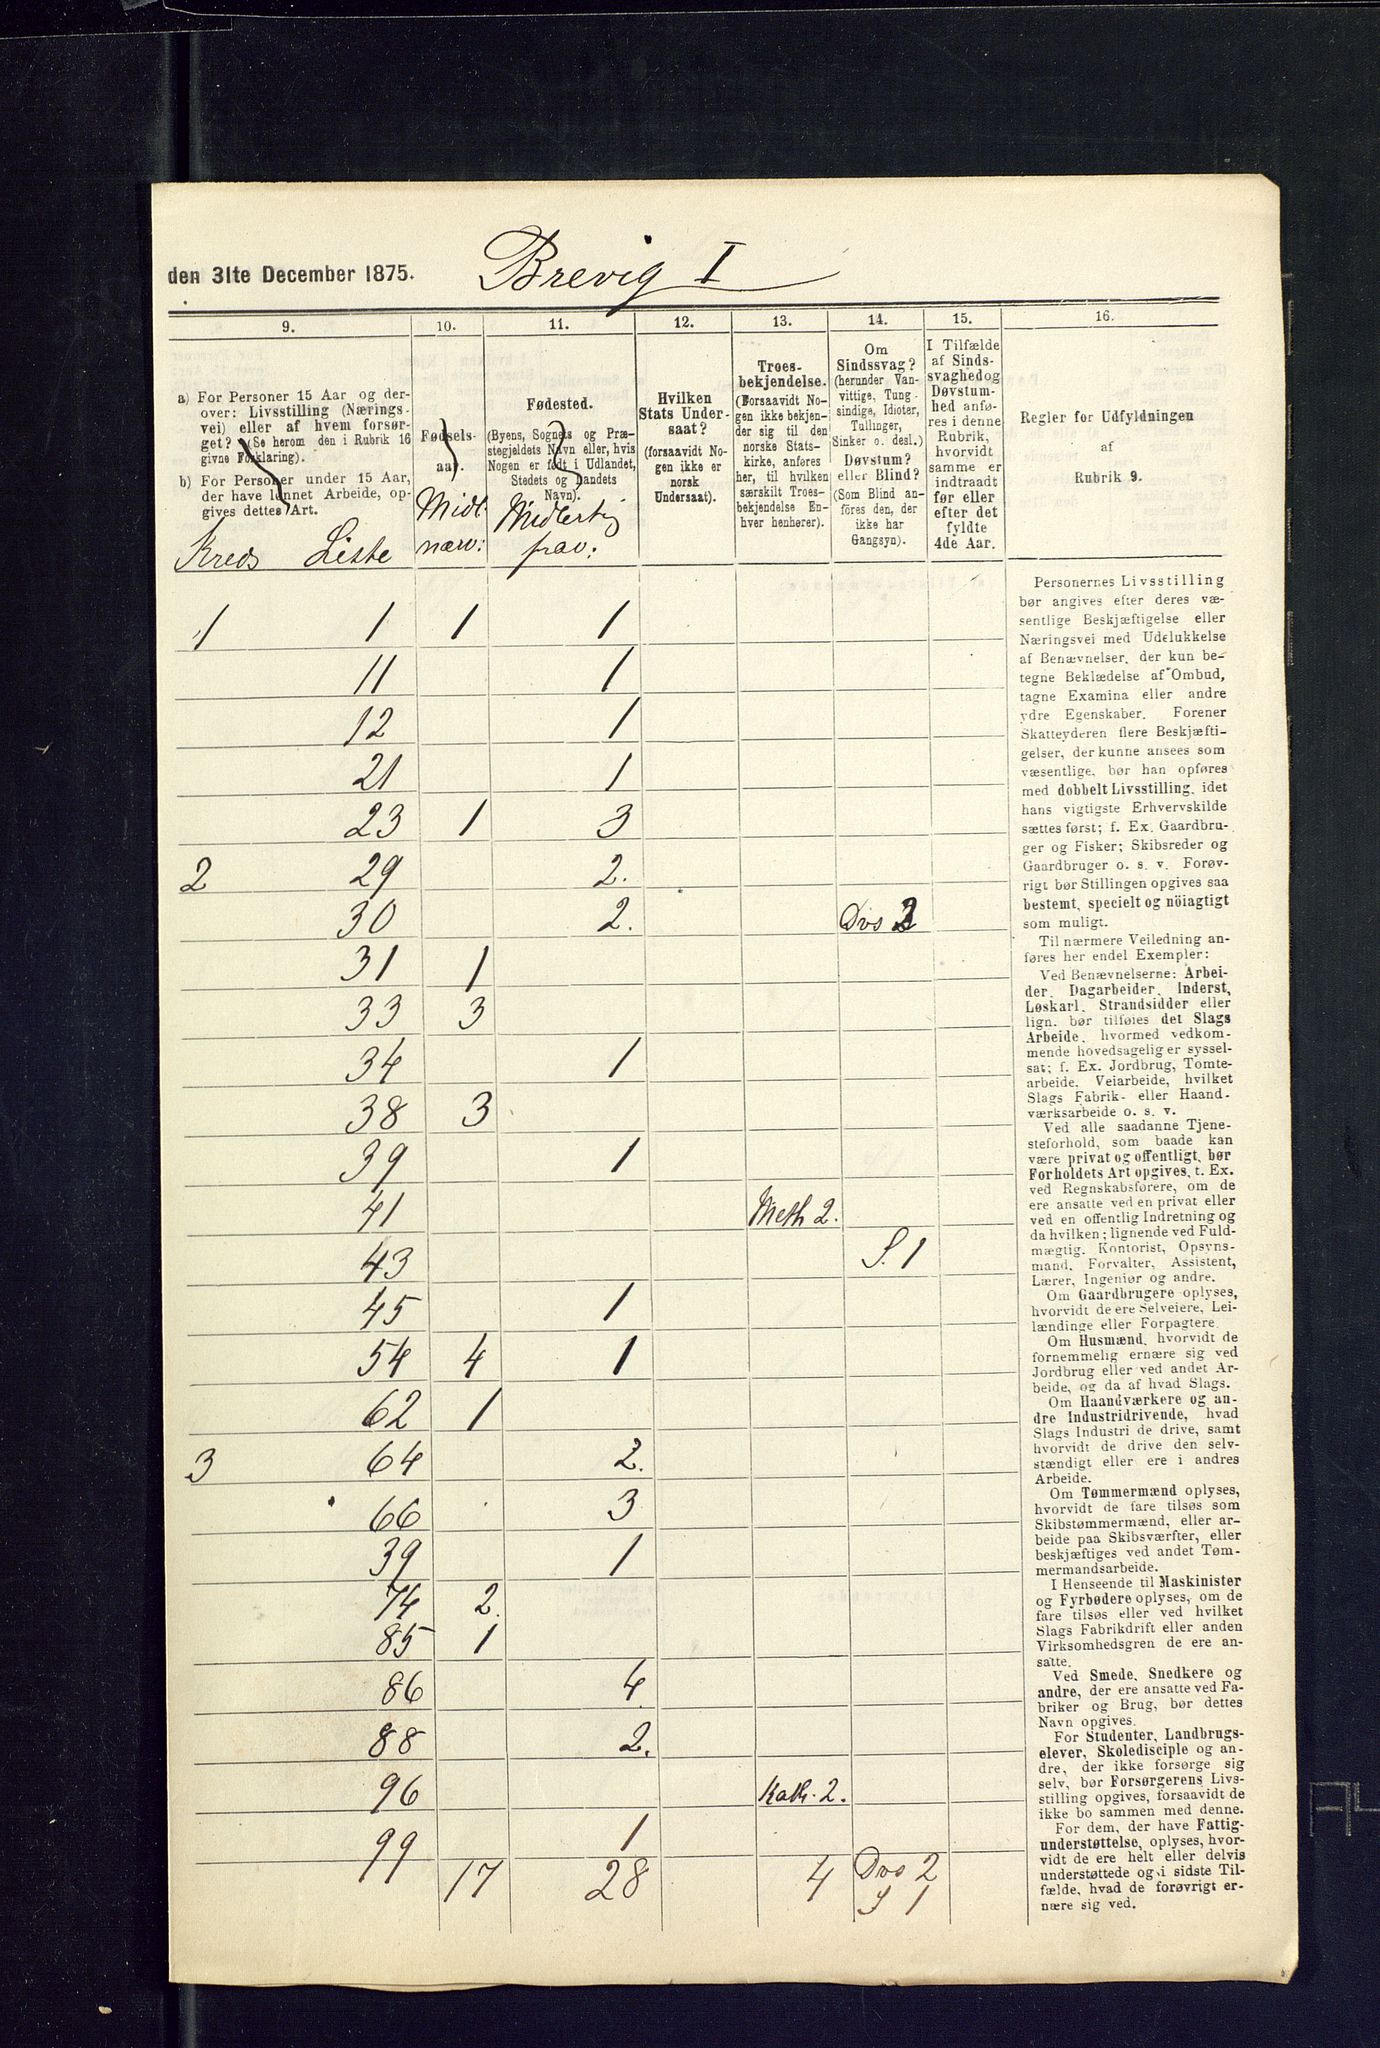 den 31te December 1875.
Brevig I
9. 10. 11. 12. 13. 14. 15. 16.
a) For Personer 15 Aar og der-
over: Livsstilling (Nærings-
vei) eller af hvem forsør-
get? (Se herom den i Rubrik 16
givne Forklaring).
b) For Personer under 15 Aar,
der have lønnet Arbeide, op-
gives dettes Art.
Kreds Liste
Fødsels-
aar.
Midl:
nærv:
Fødested.
(Byens, Sognets og Præ-
stegjeldets Navn eller, hvis
Nogen er født i Udlandet,
Stedets og Landets
Navn).
Midlertig
frav:
Hvilken
Stats Under-
saat?
(forsaavidt No-
gen ikke er
norsk
Undersaat).
Troes-
bekjendelse.
(Forsaavidt No-
gen ikke bekjen-
der sig til den
norske Stats-
kirke, anføres
her, til hvilken
særskilt Troes-
bekjendelse En-
hver henhører).
Om
Sindssvag?
(herunder Van-
vittige, Tung-
sindige, Idioter,
Tullinger,
Sinker o. desl.)
Døvstum?
eller Blind?
(Som Blind an-
føres den, der
ikke har
Gangsyn).
I Tilfælde
af Sinds-
svaghedog
Døvstum-
hed anfø-
res i denne
Rubrik,
hvorvidt
samme er
indtraadt
før eller
efter det
fyldte
4de Aar.
Regler for Udfyldningen
af
Rubrik 9.
1 1 1 1
11 1
12 1
21 1
23 1 3
2 29 2.
30 2. Dvs 2
31 1
33 3
34 1
38 3
39 1
41 Meth 2.
43 S. 1
45 1
54 4 1
62 1
3 64 2.
66 3
39 1
74 2.
85 1
86 4.
88 2.
96 Kath. 2.
99 1
17 28 4 Dvs 2
S 1
Personernes Livsstilling
bør angives efter deres væ-
sentlige Beskjæftigelse eller
Næringsvei med Udelukkelse
af Benævnelser, der kun be-
tegne Beklædelse af Ombud,
tagne Examina eller andre
ydre Egenskaber. Forener
Skatteyderen flere Beskjæfti-
gelser, der kunne ansees som
væsentlige, bør han opføres
med dobbelt Livsstilling, idet
hans vigtigste Erhvervskilde
sættes først; f. Ex. Gaardbru-
ger og Fisker; Skibsreder og
Gaardbruger o. s. v. Forøv-
rigt bør Stillingen opgives saa
bestemt, specielt og nöiagtigt
som muligt.
Til nærmere Veiledning an-
føres her endel Exempler:
Ved Benævnelserne: Arbei-
der, Dagarbeider, Inderst,
Løskarl, Strandsidder eller
lign. bør tilføies det Slags
Arbeide, hvormed vedkom-
mende hovedsagelig er syssel-
sat; f. Ex. Jordbrug, Tomte-
arbeide, Veiarbeide, hvilket
Slags Fabrik- eller Haand-
værksarbeide o. s. v.
Ved alle saadanne Tjene-
steforhold, som baade kan
være privat og offentligt, bør
Forholdets Art opgives, t. Ex.
ved Regnskabsførere, om de
ere ansatte ved en privat eller
ved en offentlig Indretning og
da hvilken; lignende ved Fuld-
mægtig, Kontorist, Opsyns-
mand, Forvalter, Assistent,
Lærer, Ingeniør og andre.
Om Gaardbrugere oplyses,
hvorvidt de ere Selveiere, Lei-
lændinge eller Forpagtere.
Om Husmænd, hvorvidt de
fornemmelig ernære sig ved
Jordbrug eller ved andet Ar-
beide, og da af hvad Slags.
Om Haandværkere og an-
dre Industridrivende, hvad
Slags Industri de drive, samt
hvorvidt de drive den selv-
stændigt eller ere i andres
Arbeide.
Om Tømmermænd oplyses,
hvorvidt de fare tilsøs som
Skibstømmermænd, eller ar-
beide paa Skibsværfter, eller
beskjæftiges ved andet Tøm-
mermandsarbeide.
I Henseende til Maskinister
og Fyrbødere oplyses, om de
fare tilsøs eller ved hvilket
Slags Fabrikdrift eller anden
Virksomhedsgren de ere an-
satte.
Ved Smede, Snedkere og
andre, der ere ansatte ved Fa-
briker og Brug, bør dettes
Navn opgives.
For Studenter, Landbrugs-
elever, Skoledisciple og an-
dre, der ikke forsørge sig
selv, bør Forsørgerens Livs-
stilling opgives, forsaavidt de
ikke bo sammen med denne.
For dem, der have Fattig-
understøttelse, oplyses, hvor-
vidt de ere helt eller delvis
understøttede og i sidste Til-
fælde, hvad de forøvrigt er-
nære sig ved.